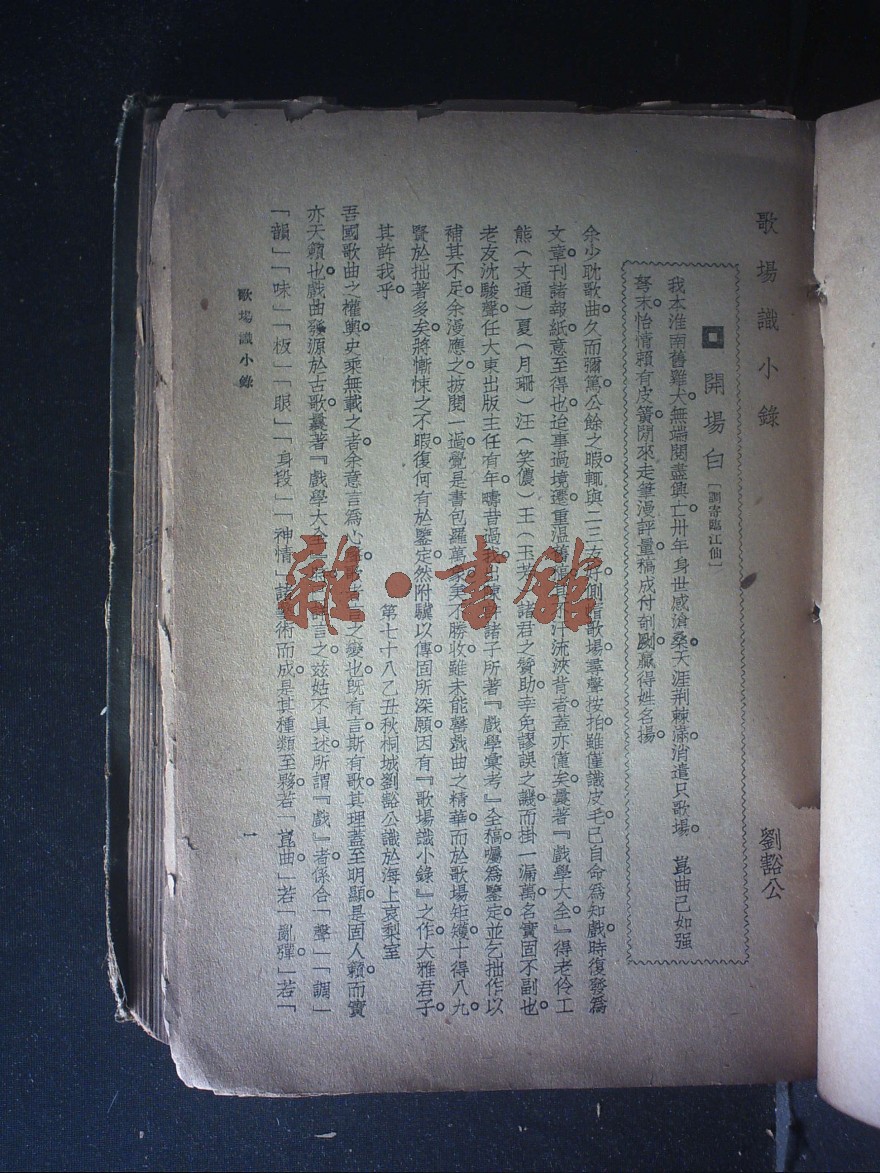 歌場識小錄
劉豁公
開場白［調寄臨江仙］
我本淮南舊雞犬。無端閱盡興亡。卅年身世感滄桑。天涯荆棘滿。消遣只歌場。　崑曲已如强
弩末。怡情賴有皮簧。閒來走筆漫評量。稿成付剞劂。贏得姓名揚。
余少耽歌曲。久而彌篤。公餘之暇。輒與二三友好。側猜歌場。尋聲按拍。雖僅識皮毛。已自命爲知戲。時復發爲
文章。刊諸報紙。意至得也。迨事過境遷。重溫舊　　　不汗流浹背者。蓋亦僅矣。曩著『戲學大全』。得老伶工
熊（文通）夏（月珊）汪（笑儂）王（玉芳）諸君之贊助。幸免謬誤之譏。而掛一漏萬。名實固不副也。
老友沈駿聲。任大東出版主任有年。疇昔過我。出　　諸子所著『戲學彙考』全稿。囑爲鑒定。並乞拙作以
補其不足。余漫應之。披閱一過。覺是書包羅萬象。美不勝收。雖未能罄戲曲之精華。而於歌場矩矱。十得八九。
賢於拙著多矣。將慚悚之不暇。復何有於鑒定。然附驥以傳。固所深願。因有『歌場識小錄』之作。大雅君子。
其許我乎。　第七十八乙丑秋桐城劉豁公識於海上哀梨室
吾國歌曲之權輿。史乘無載之者。余意言爲心聲。歌　言之變也。旣有言。斯有歌。其理蓋至明顯。是固人籟。而實
亦天籟也。戲曲發源於古歌。曩著『戲學大全』　　詳言之。玆姑不具述。所謂『戲』者。係合「聲」「調」
「韻」「味」「板」「眼」「身段」「神情」諸藝術而成。是其種類至夥。若「崑曲」若「亂彈」若「
歌場識小錄
一
雜·書館